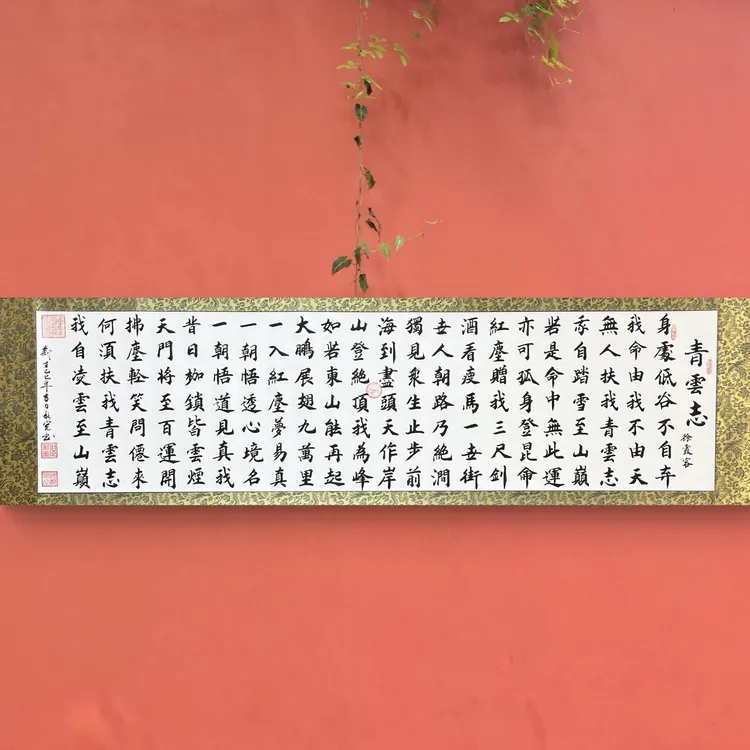 青雲志
徐霞客
身處低谷不自弃
我命由我不由天
無人扶我青雲志
我自踏雪至山巔
若是命中無此運
亦可孤身登昆侖
紅塵贈我三尺劍
酒看瘦馬一世街
世人朝路乃絶澗
獨見衆生止步前
海到盡頭天作岸
山登絶頂我為峰
如若東山能再起
大鵬展翅九萬里
一入紅塵夢易真
一朝悟透心境名
一朝悟道見真我
昔日枷鎖皆雲煙
天門將至百運開
拂塵輕笑問僊來
何須扶我青雲志
我自凌雲至山巔
乙巳年吉日